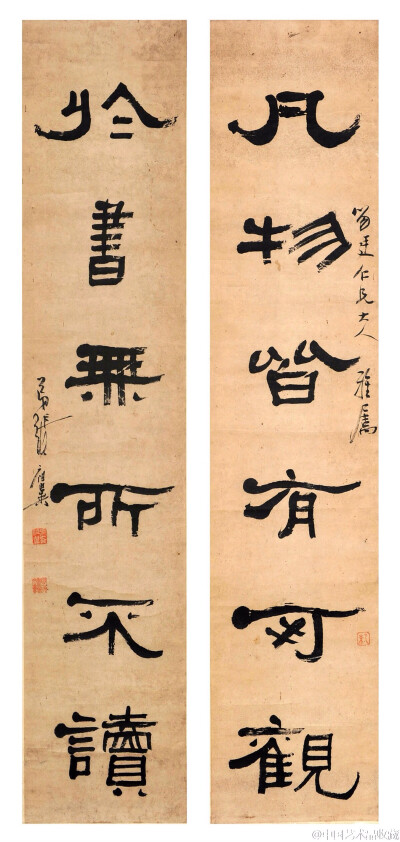 凡物皆有可觀
仁兄大人 雅屬
於書無所不讀
弟
@中国艺术品收藏